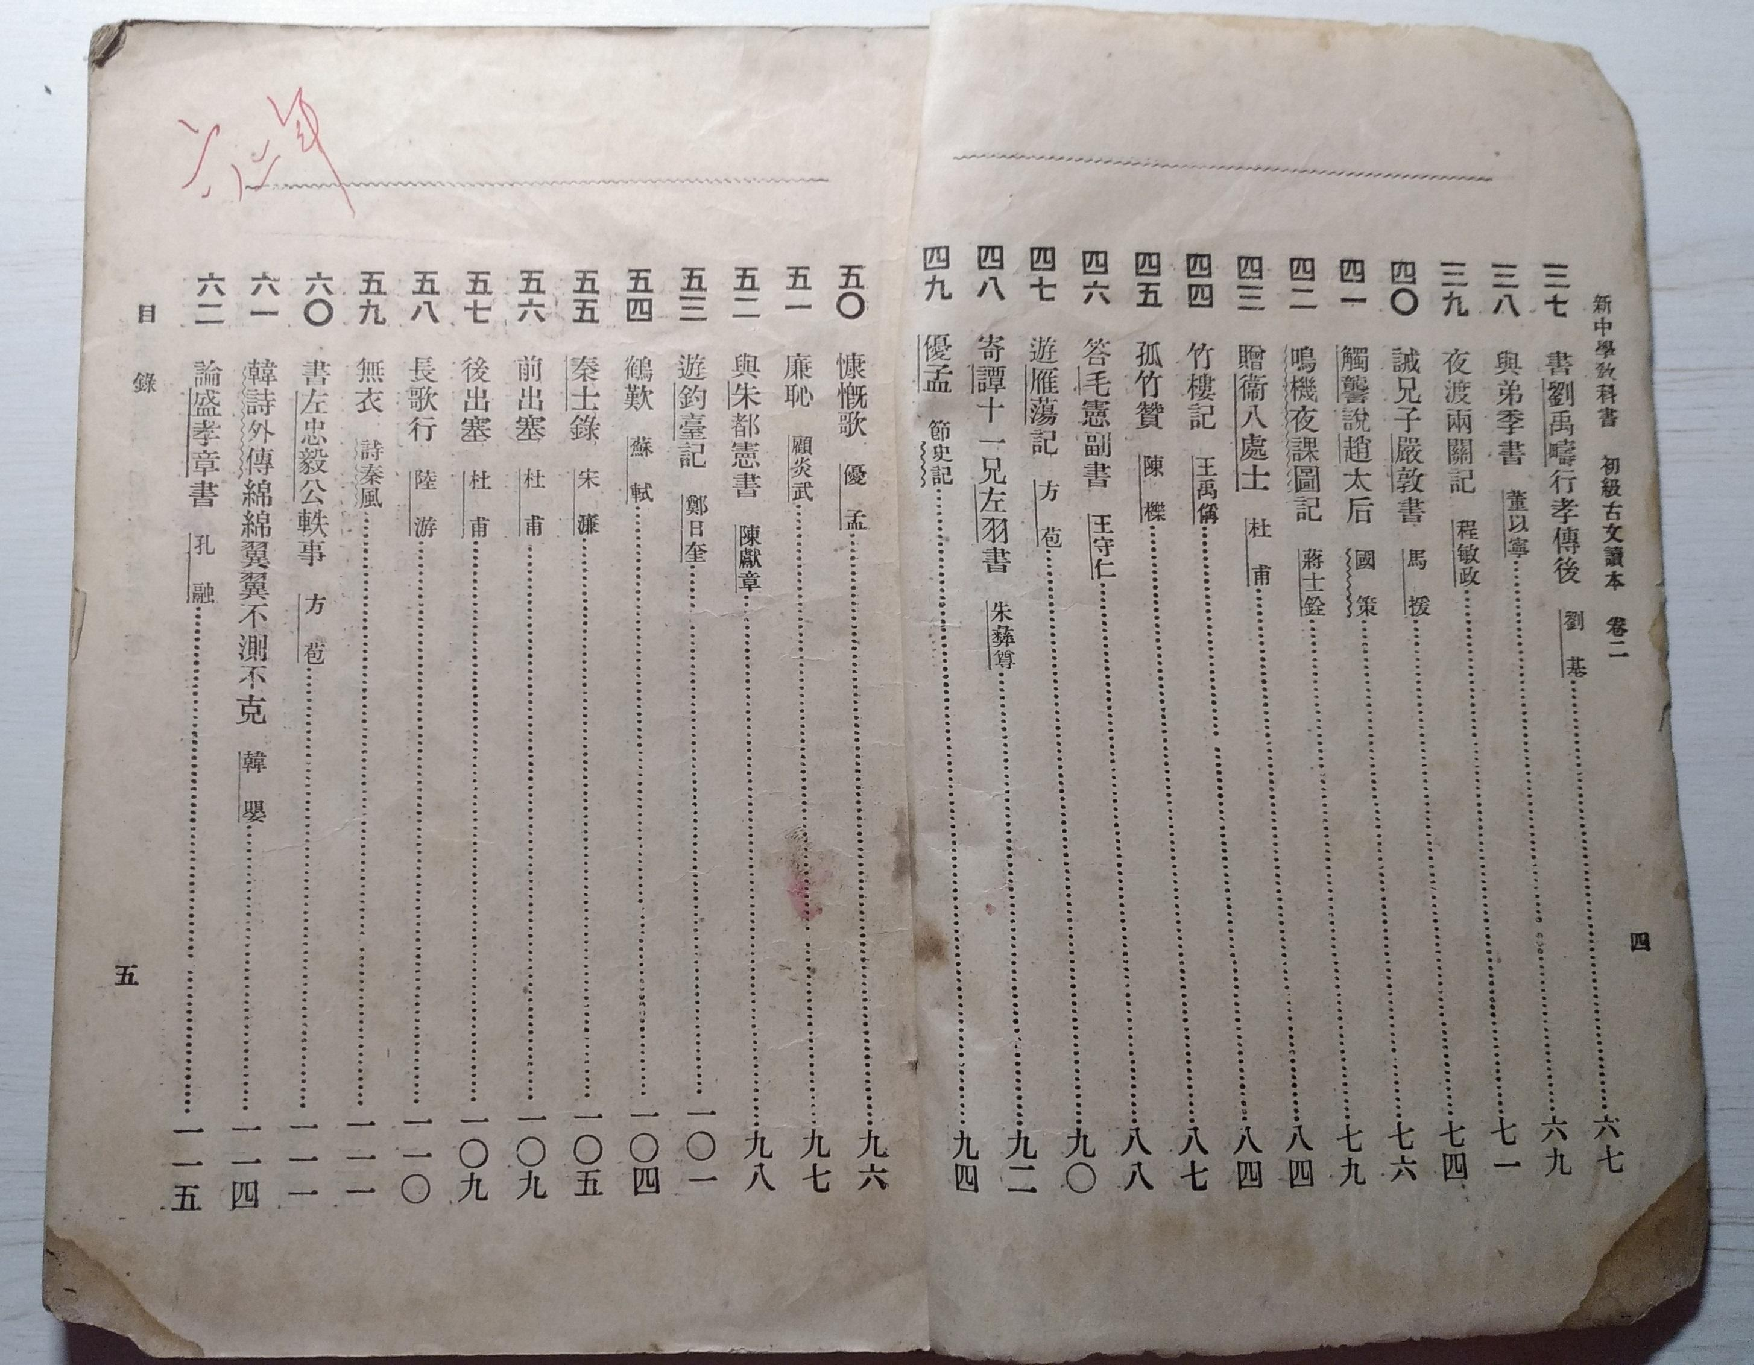 新中學教科書 初級古文讀本 卷二
四
三七 書劉禹疇行孝傳後 劉基 六七
三八 與弟季書 董以寧 六九
三九 夜渡兩關記 程敏政 七一
四〇 誡兄子嚴敦書 馬援 七四
四一 觸讋說趙太后 國策 七六
四二 鳴機夜課圖記 蔣士銓 七九
四三 贈衞八處士 杜甫 八四
四四 竹樓記 王禹偁 八四
四五 孤竹贊 陳櫟 八七
四六 答毛憲副書 王守仁 八八
四七 遊雁蕩記 方苞 九〇
四八 寄譚十一兄左羽書 朱彝尊 九二
四九 優孟 節史記 九四
五〇 慷慨歌 優孟 九六
五一 廉恥 顧炎武 九七
五二 與朱都憲書 陳獻章 九八
五三 遊釣臺記 鄭日奎 一〇一
五四 鶴歎 蘇軾 一〇四
五五 秦士錄 宋濂 一〇五
五六 前出塞 杜甫 一〇九
五七 後出塞 杜甫 一〇九
五八 長歌行 陸游 一一〇
五九 無衣 詩秦風 一一一
六〇 書左忠毅公軼事 方苞 一一一
六一 韓詩外傳綿綿翼翼不測不克 韓嬰 一一四
六二 論盛孝章書 孔融 一一五
目錄
五